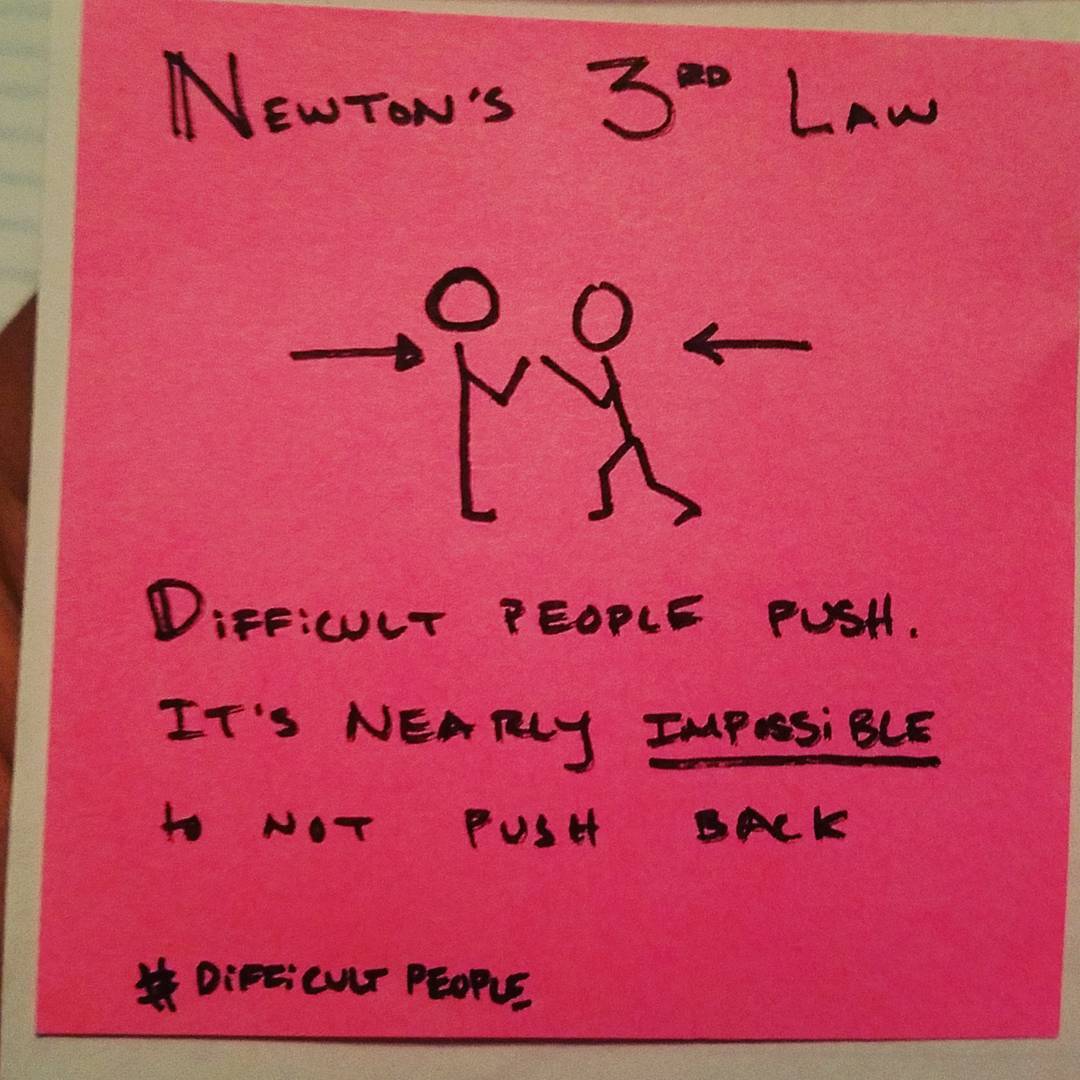 NEWTON'S 3RD LAW
DiFFiCULT PEOPLE PUSH.
IT'S NEARLY IMPOSSiBLE
to NOT PUSH BACK
# DiFFiCULT PEOPLE